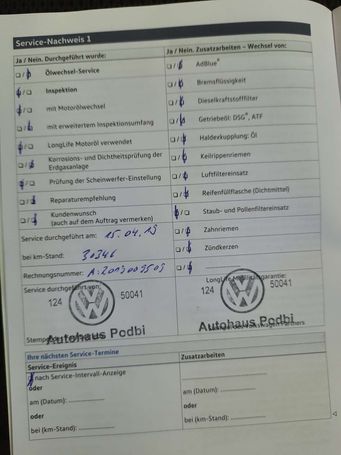 Service-Nachweis 1
Ja / Nein. Durchgeführt wurde:
Ölwechsel-Service
Inspektion
mit Motorölwechsel
mit erweitertem Inspektionsumfang
LongLife Motoröl verwendet
Korrosions- und Dichtheitsprüfung der Erdgasanlage
Prüfung der Scheinwerfer-Einstellung
Reparaturempfehlung
Kundenwunsch
(auch auf dem Auftrag vermerken)
Service durchgeführt am: 15.04.19
bei km-Stand: 30346
Rechnungsnummer:
Service durchgeführt von:
124 50041
Autohaus Podbi
Ja / Nein. Zusatzarbeiten – Wechsel von:
AdBlue®
Bremsflüssigkeit
Dieselkraftstofffilter
Getriebeöl: DSG®, ATF
Haldexkupplung: Öl
Keilrippenriemen
Luftfiltereinsatz
Reifenfüllflasche (Dichtmittel)
Staub- und Pollenfiltereinsatz
Zahnriemen
Zündkerzen
124 50041
Autohaus Podbi
Ihre nächsten Service-Termine
Service-Ereignis
nach Service-Intervall-Anzeige
oder
am (Datum):
oder
bei (km-Stand):
Zusatzarbeiten
am (Datum):
oder
bei (km-Stand):